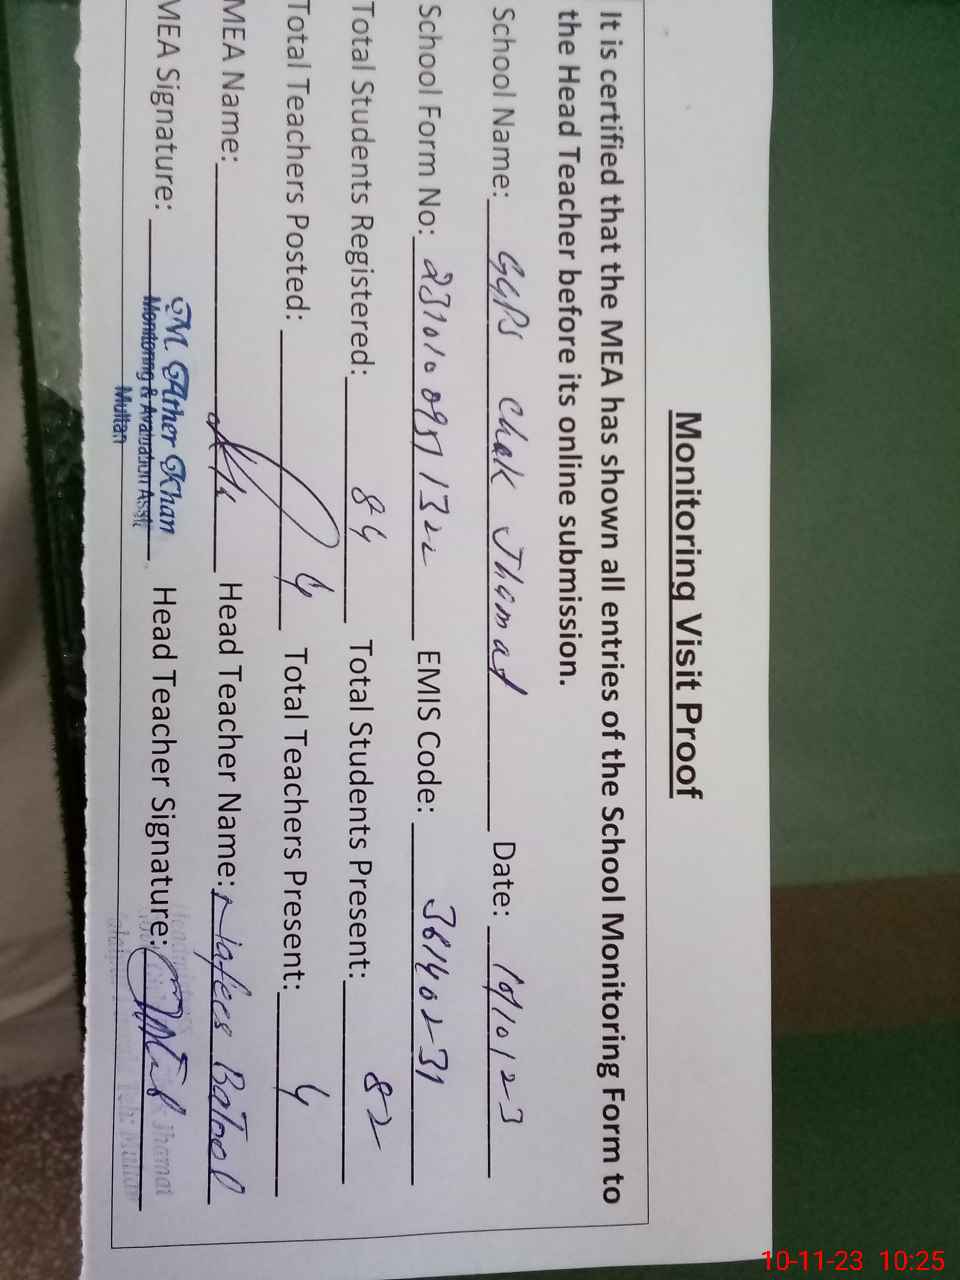 Monitoring Visit Proof
It is certified that the MEA has shown all entries of the School Monitoring Form to
the Head Teacher before its online submission.
School Name: GGPS Chak Jhamat Date: 10/10/23
School Form No: 23101009511322 EMIS Code: 36140231
Total Students Registered: 84 Total Students Present: 82
Total Teachers Posted: 4 Total Teachers Present: 4
MEA Name: Head Teacher Name: Nafees Batool
MEA Signature: M. Ather Khan Head Teacher Signature:
Monitoring & Avaluation Asstt
Multan
10-11-23 10:25